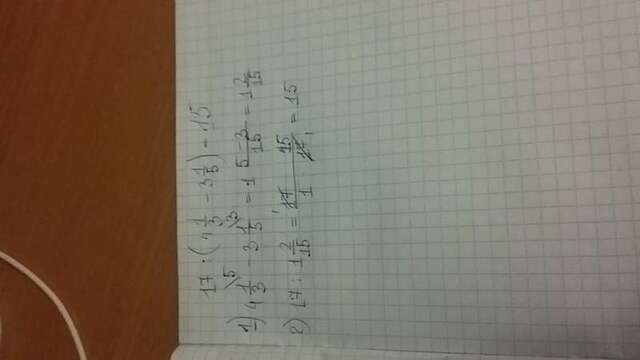 17 : (4 1/3 - 3 1/5) = 15
1) 4 1/3 \5 - 3 1/5 \3 = 1 5-3/15 = 1 2/15
2) 17 : 1 2/15 = 17 15/1 17 = 15